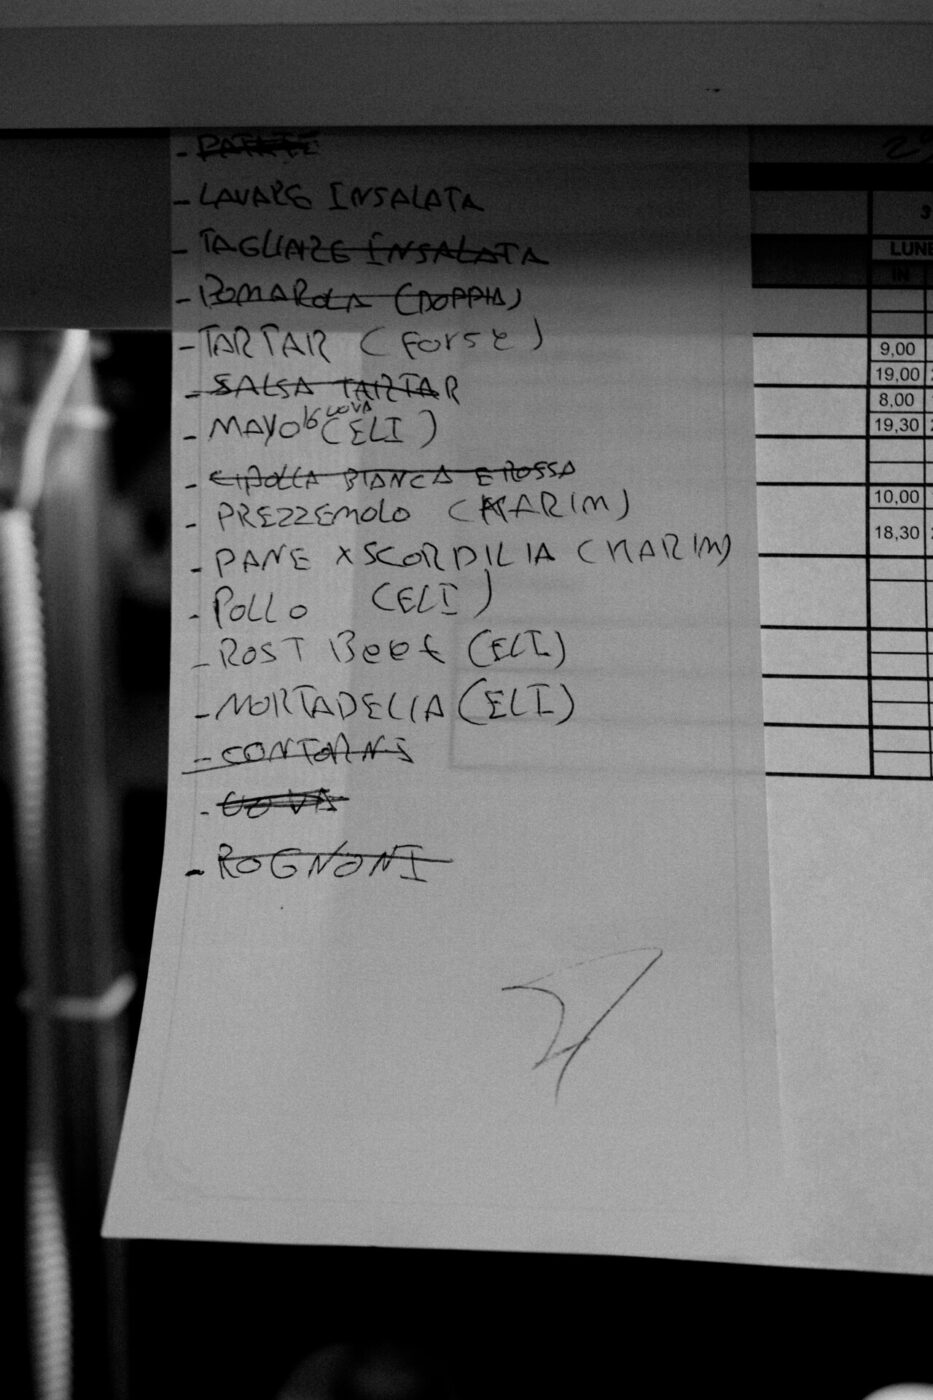 - PATATE
- LAVARE INSALATA
- TAGLIARE INSALATA
- POMAROLA (DOPPIA)
- TARTAR (forse)
- SALSA TARTAR
- MAYO 16 UOVA (ELI)
- CIPOLLA BIANCA E ROSSA
- PREZZEMOLO (KARIM)
- PANE X SCORDILIA (KARIM)
- POLLO (ELI)
- ROST Beef (ELI)
- MORTADELLA (ELI)
- CONTORNI
- UOVA
- ROGNONI
3
LUNE
IN
9,00
19,00
8,00
19,30
10,00
18,30